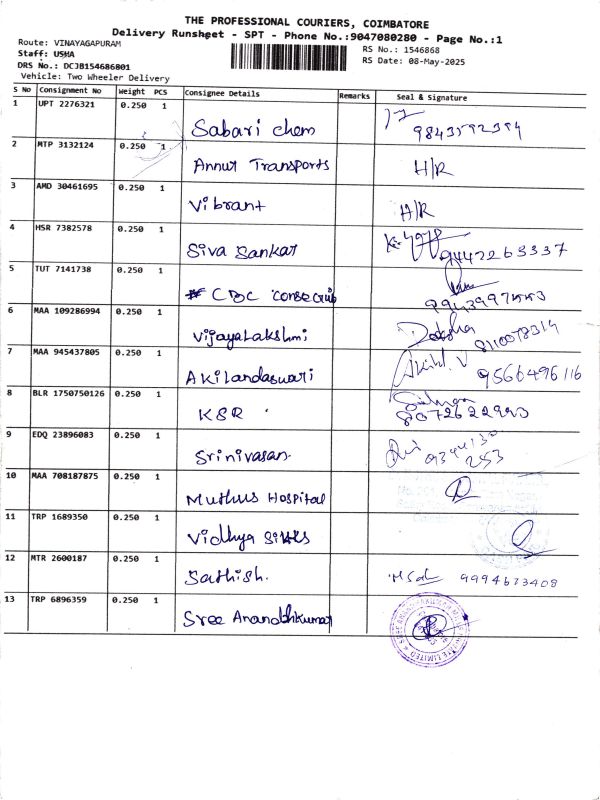 THE PROFESSIONAL COURIERS, COIMBATORE
Delivery Runsheet - SPT - Phone No.:9047080280 - Page No.:1
Route: VINAYAGAPURAM
Staff: USHA
DRS No.: DCJB154686801
Vehicle: Two Wheeler Delivery
RS No.: 1546868
RS Date: 08-May-2025
S No Consignment No Weight PCS Consignee Details Remarks Seal & Signature
1 UPT 2276321 0.250 1 Sabari chem
2 MTP 3132124 0.250 1 Annur Transports H/R
3 AMD 30461695 0.250 1 Vibrant H/R
4 HSR 7382578 0.250 1 Siva Sankar 9442263337
5 TUT 7141738 0.250 1 CBC
6 MAA 109286994 0.250 1 VijayaLakshmi Daksha 8110078314
7 MAA 945437805 0.250 1 Akilandaswari Akihl. V 9566496116
8 BLR 1750750126 0.250 1 KSR
9 EDQ 23896083 0.250 1 Srinivasan.
10 MAA 708187875 0.250 1 Muthus Hospital
11 TRP 1689350 0.250 1 Vidhya
12 MTR 2600187 0.250 1 Sathish. 9994673408
13 TRP 6896359 0.250 1 Sree Anandhkumar